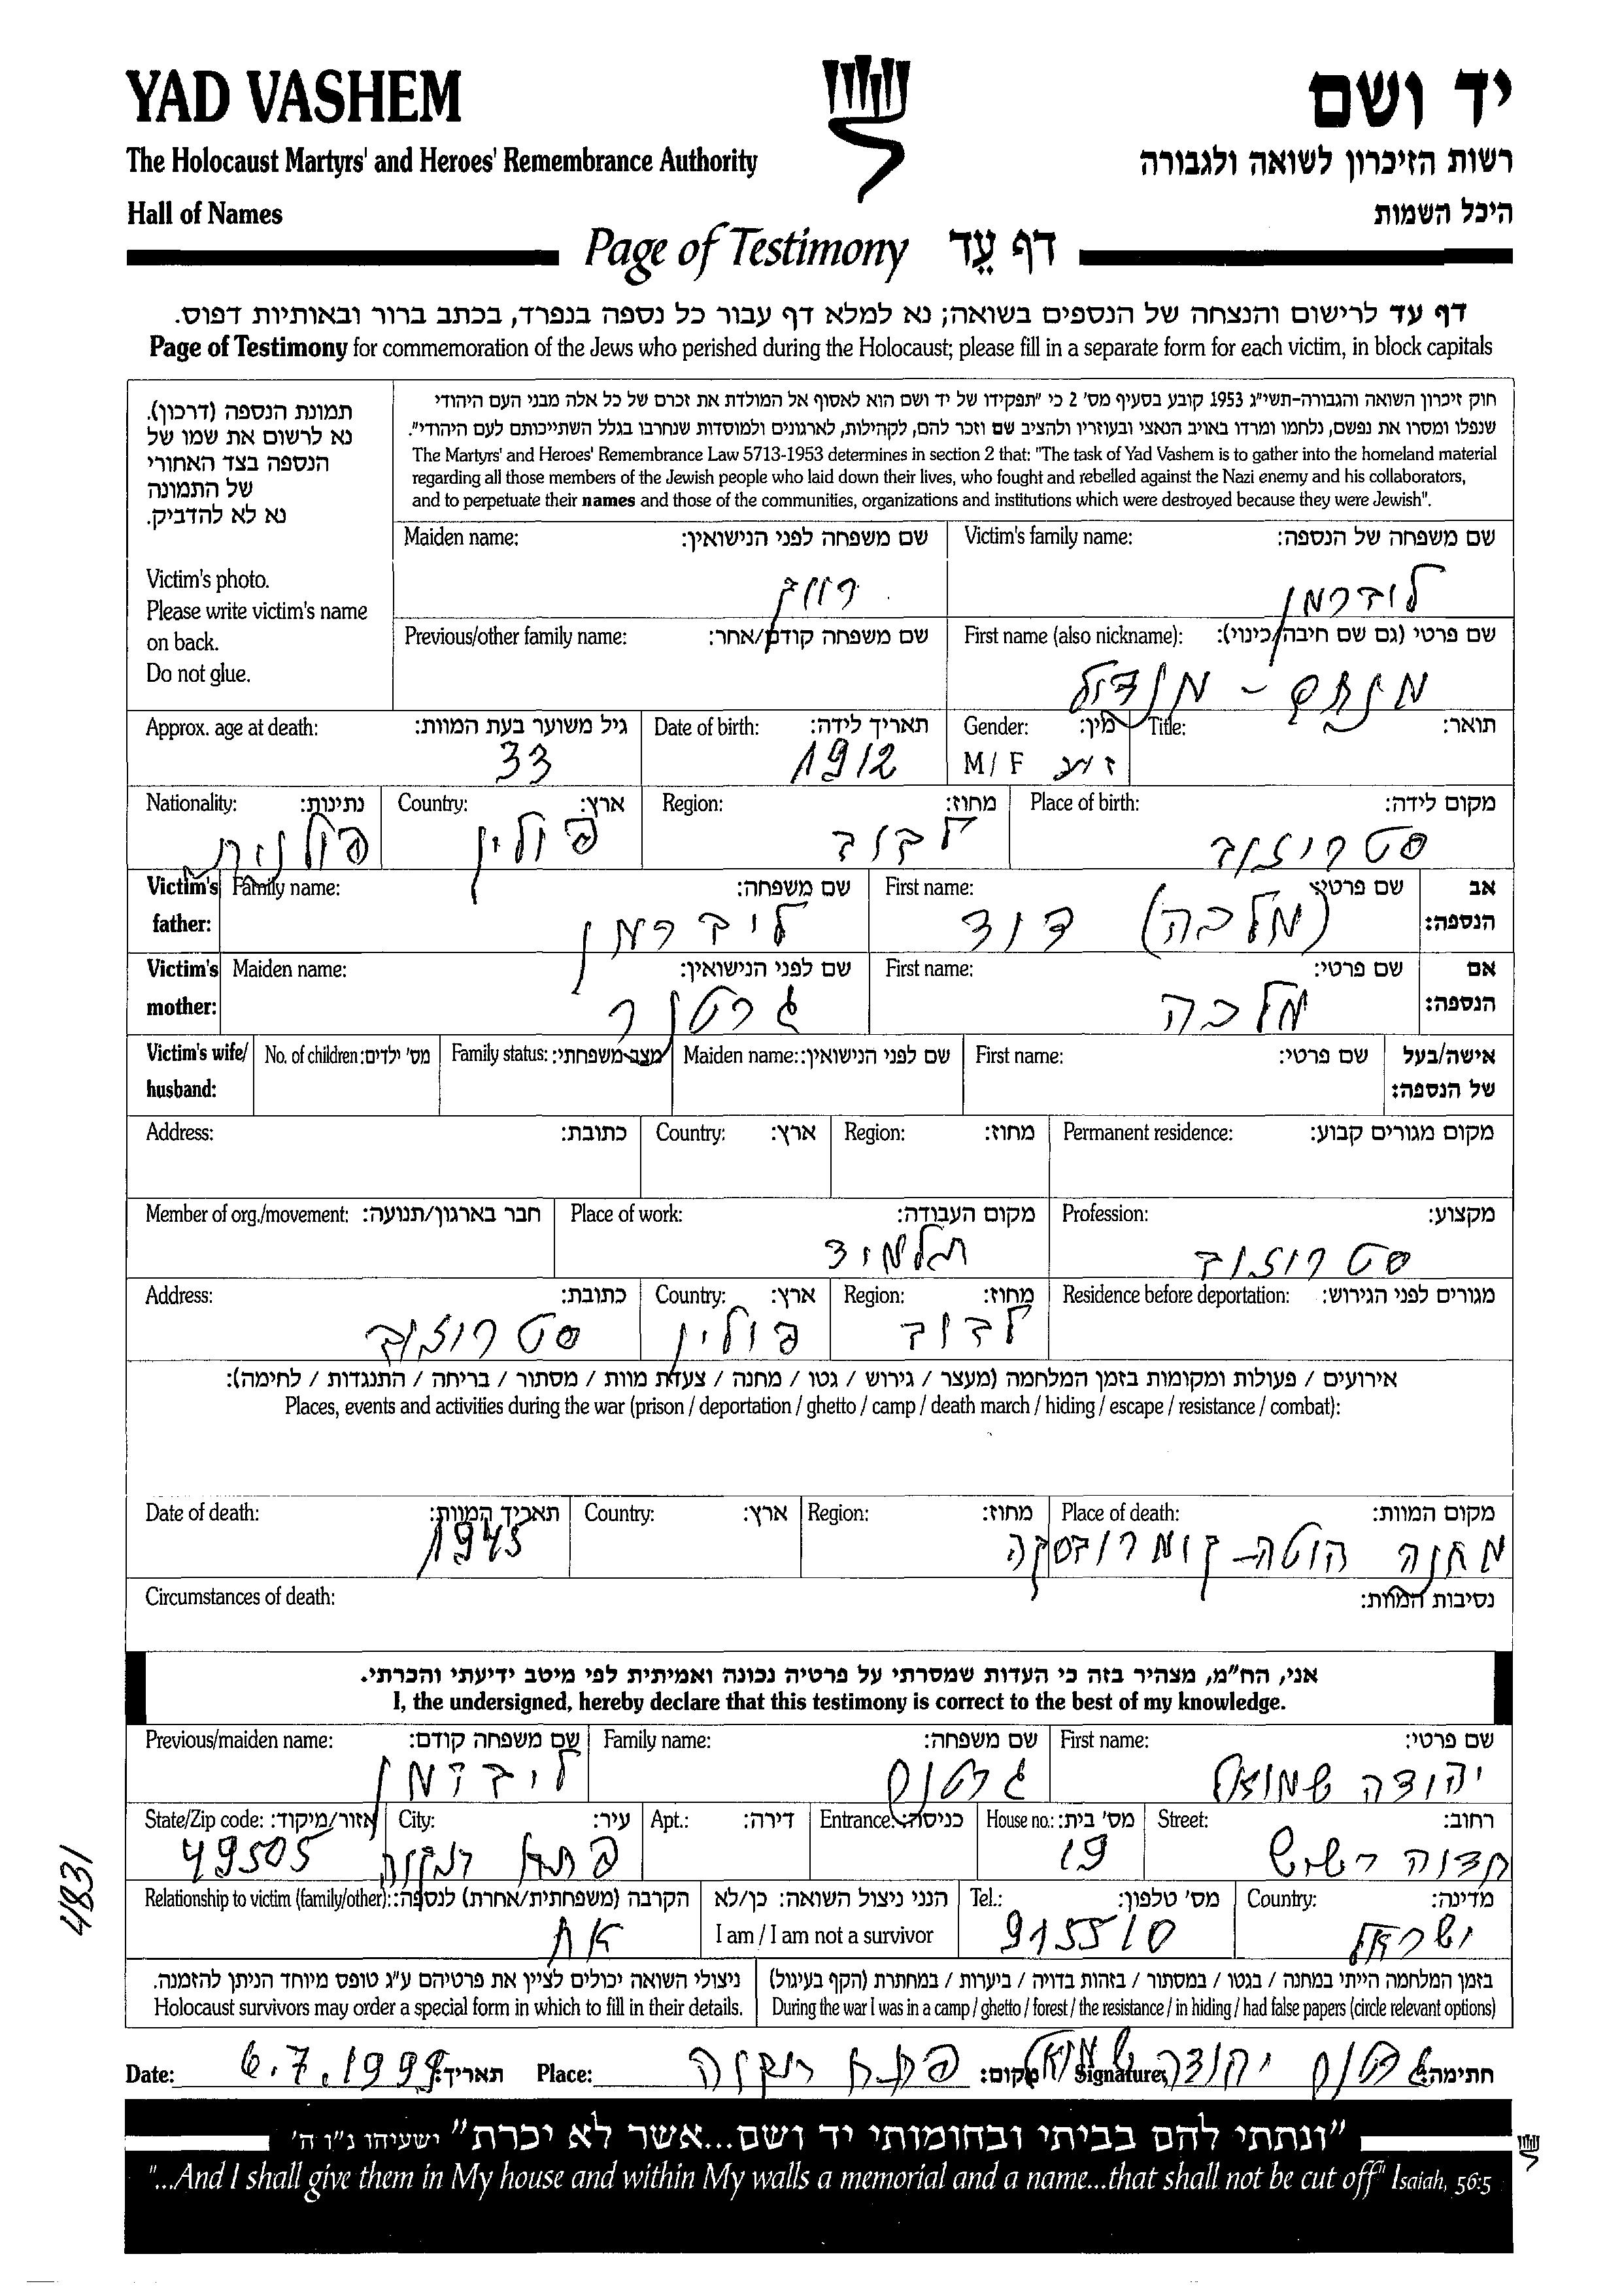 YAD VASHEM
יד ושם
The Holocaust Martyrs' and Heroes' Remembrance Authority
רשות הזיכרון לשואה ולגבורה
Hall of Names
היכל השמות
Page of Testimony דף עֵד
דף עד לרישום והנצחה של הנספים בשואה; נא למלא דף עבור כל נספה בנפרד, בכתב ברור ובאותיות דפוס.
Page of Testimony for commemoration of the Jews who perished during the Holocaust; please fill in a separate form for each victim, in block capitals
תמונת הנספה (דרכון).
נא לרשום את שמו של
הנספה בצד האחורי
של התמונה
נא לא להדביק.
Victim's photo.
Please write victim's name
on back.
Do not glue.
חוק זיכרון השואה והגבורה-תשי"ג 1953 קובע בסעיף מס' 2 כי "תפקידו של יד ושם הוא לאסוף אל המולדת את זכרם של כל אלה מבני העם היהודי
שנפלו ומסרו את נפשם, נלחמו ומרדו באויב הנאצי ובעוזריו ולהציב שם וזכר להם, לקהילות, לארגונים ולמוסדות שנחרבו בגלל השתייכותם לעם היהודי".
The Martyrs' and Heroes' Remembrance Law 5713-1953 determines in section 2 that: "The task of Yad Vashem is to gather into the homeland material
regarding all those members of the Jewish people who laid down their lives, who fought and rebelled against the Nazi enemy and his collaborators,
and to perpetuate their names and those of the communities, organizations and institutions which were destroyed because they were Jewish".
Victim's family name: שם משפחה של הנספה:
Maiden name: שם משפחה לפני הנישואין:
רווק
First name (also nickname): שם פרטי (גם שם חיבה/כינוי):
מנחם - מנדול
Previous/other family name: שם משפחה קודם/אחר:
Title: תואר:
Gender: מין:
M / F זכר
Date of birth: תאריך לידה:
1912
Approx. age at death: גיל משוער בעת המוות:
33
Place of birth: מקום לידה:
סטרוזוב
Region: מחוז:
לבוב
Country: ארץ:
פולין
Nationality: נתינות:
פולנית
Victim's father: אב הנספה:
First name: שם פרטי:
(מלכה) דוד
Family name: שם משפחה:
ליברמן
Victim's mother: אם הנספה:
First name: שם פרטי:
מלכה
Maiden name: שם לפני הנישואין:
גרטנר
Victim's wife/ husband: אישה/בעל של הנספה:
First name: שם פרטי:
Maiden name: שם לפני הנישואין:
Family status: מצב משפחתי:
No. of children: מס' ילדים:
Permanent residence: מקום מגורים קבוע:
Region: מחוז:
Country: ארץ:
Address: כתובת:
Profession: מקצוע:
סטרוזוב
Place of work: מקום העבודה:
תלמיד
Member of org./movement: חבר בארגון/תנועה:
Residence before deportation: מגורים לפני הגירוש:
Region: מחוז:
לבוב
Country: ארץ:
פולין
Address: כתובת:
סטרוזוב
אירועים / פעולות ומקומות בזמן המלחמה (מעצר / גירוש / גטו / מחנה / צעדת מוות / מסתור / בריחה / התנגדות / לחימה):
Places, events and activities during the war (prison / deportation / ghetto / camp / death march / hiding / escape / resistance / combat):
Place of death: מקום המוות:
מחנה הוטה-קומרובסקה
Region: מחוז:
Country: ארץ:
Date of death: תאריך המוות:
1943
Circumstances of death: נסיבות המוות:
אני, הח"מ, מצהיר בזה כי העדות שמסרתי על פרטיה נכונה ואמיתית לפי מיטב ידיעתי והכרתי.
I, the undersigned, hereby declare that this testimony is correct to the best of my knowledge.
First name: שם פרטי:
יהודה שמואל
Family name: שם משפחה:
גרטנר
Previous/maiden name: שם משפחה קודם:
ליברמן
Street: רחוב:
House no.: מס' בית:
19
Entrance: כניסה:
Apt.: דירה:
City: עיר:
פתח תקוה
State/Zip code: אזור/מיקוד:
49505
Country: מדינה:
ישראל
Tel.: מס' טלפון:
9155510
הנני ניצול השואה: כן/לא
I am / I am not a survivor
Relationship to victim (family/other): הקרבה (משפחתית/אחרת) לנספה:
אח
בזמן המלחמה הייתי במחנה / בגטו / במסתור / בזהות בדויה / ביערות / במחתרת (הקף בעיגול)
During the war I was in a camp / ghetto / forest / the resistance / in hiding / had false papers (circle relevant options)
ניצולי השואה יכולים לציין את פרטיהם ע"ג טופס מיוחד הניתן להזמנה.
Holocaust survivors may order a special form in which to fill in their details.
Date: 6.7.1999 תאריך: Place: פתח תקוה מקום: Signature: חתימה:
"ונתתי להם בביתי ובחומותי יד ושם...אשר לא יכרת" ישעיהו נ"ו ה'
"...And I shall give them in My house and within My walls a memorial and a name...that shall not be cut off" Isaiah, 56:5
4831